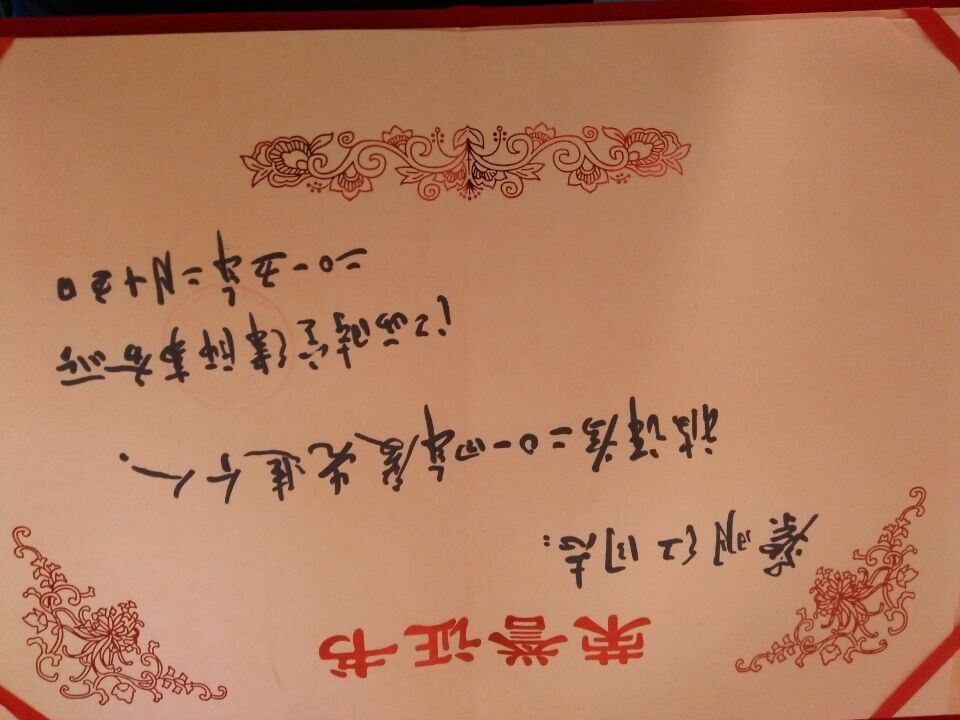 荣誉证书
蔡明红同志:
被评为二0一四年度先进个人、
江西博言律师事务所
二0一五年二月十三日